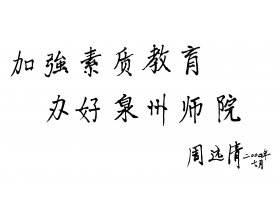 加強素质教育
办好泉州师院
周远清 二〇〇四年
七月